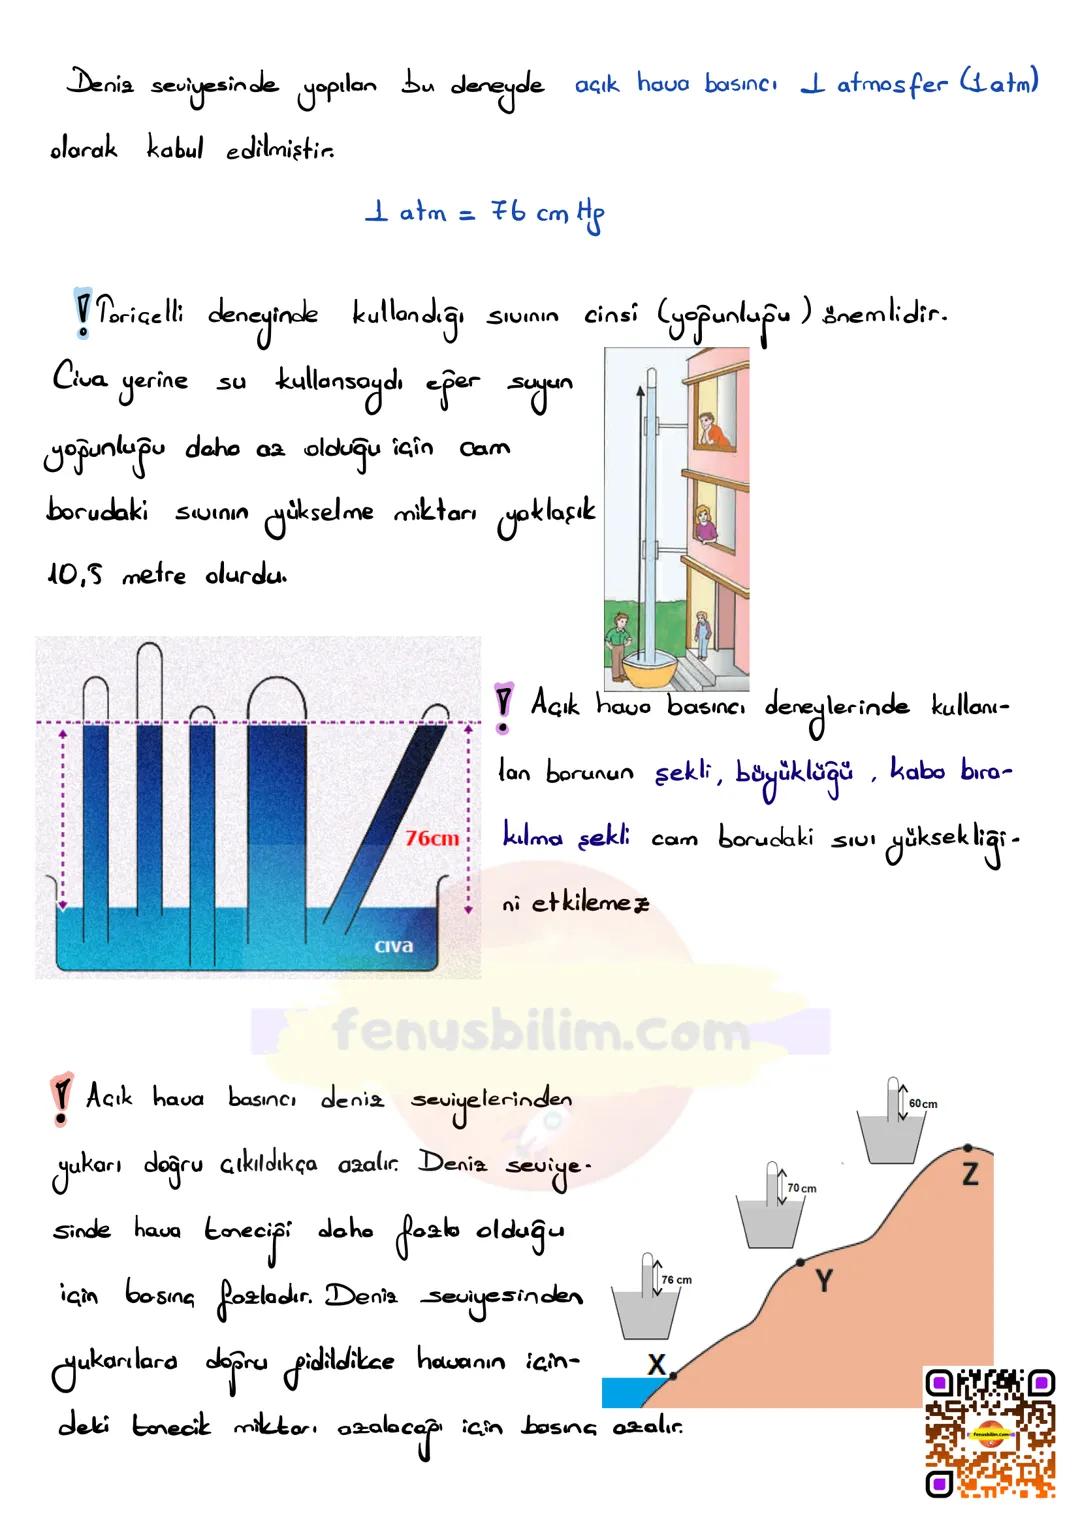 Deniz seviyesinde yapılan bu deneyde açık hava basıncı 1 atmosfer (1 atm)
olarak kabul edilmiştir.
1 atm = 76 cm Hg
! Toriçelli deneyinde kullandığı sıvının cinsi (yoğunluğu) önemlidir.
Civa yerine su kullansaydı eğer suyun
yoğunluğu daha az olduğu için cam
borudaki sıvının yükselme miktarı yaklaşık
10,5 metre olurdu.
76cm
cıva
! Açık hava basıncı deneylerinde kullanı-
lan borunun şekli, büyüklüğü, kaba bıra-
kılma şekli cam borudaki sıvı yüksekliği-
ni etkilemez
fenusbilim.com
! Açık hava basıncı deniz seviyelerinden
yukarı doğru çıkıldıkça azalır. Deniz seviye-
sinde hava taneciği daha fazla olduğu
için basınç fazladır. Deniz seviyesinden
yukarılara doğru gidildikce havanın için-
deki tanecik miktarı azalacağı için basınç azalır.
60 cm
Z
70 cm
Y
76 cm
X
fenusbilim.com